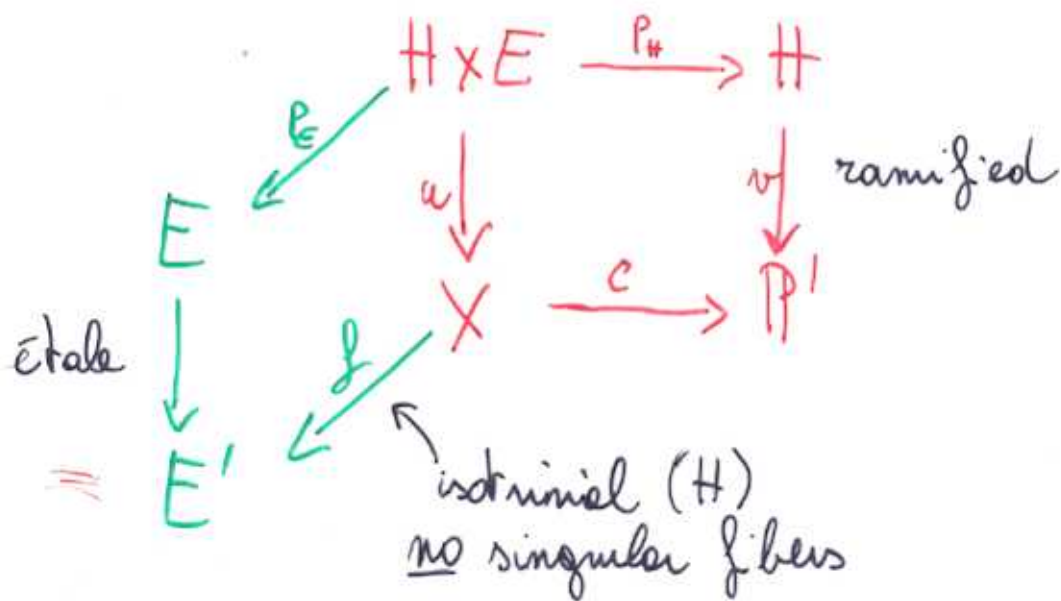 H × E P_H H
P_E
u v ramified
E
X c P'
étale f
E' isotrivial (H)
no singular fibers